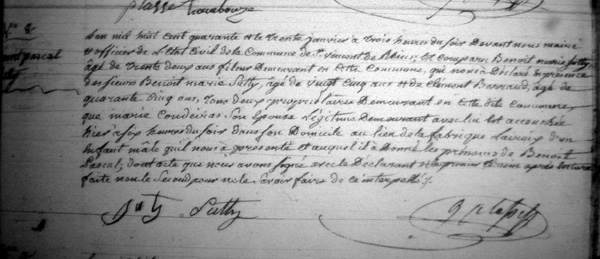 N° 8
L'an mil huit cent quarante et le trente janvier à trois heures du soir devant nous maire
et officier de l'état civil de la Commune de St Vincent de Reins, est comparu Benoit marie Sutty
âgé de trente deux ans fileur demeurant en cette Commune, qui nous a déclaré en présence
des sieurs Benoit marie Sutty, âgé de vingt cinq ans et de Clément Barraud, âgé de
quarante cinq ans, tous deux propriétaires demeurant en cette dite Commune,
que marie son épouse légitime demeurant avec lui est accouchée
hier à six heures du soir dans son domicile au lieu de la fabrique d'un
Enfant mâle qu'il nous a présenté et auquel il a donné les prénoms de Benoit
Pascal, dont acte que nous avons signé avec le Déclarant et le premier témoin après lecture
faite non le second pour ne le savoir faire de ce interpellé.
Sutty Sutty